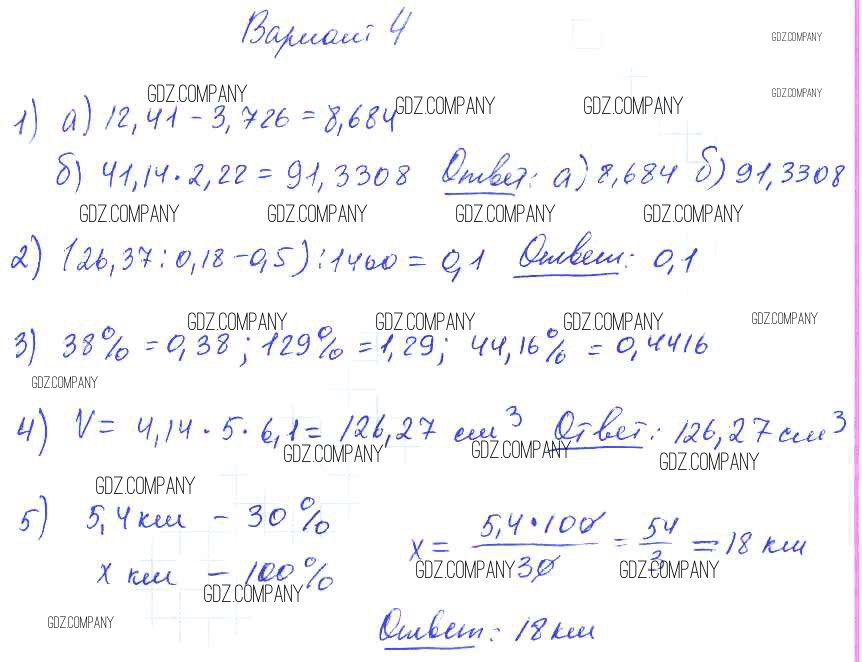 Вариант 4
GDZ.COMPANY
GDZ.COMPANY GDZ.COMPANY
GDZ.COMPANY GDZ.COMPANY
1) а) 12,41 - 3,726 = 8,684
б) 41,14 · 2,22 = 91,3308 Ответ: а) 8,684 б) 91,3308
GDZ.COMPANY GDZ.COMPANY GDZ.COMPANY GDZ.COMPANY
2) (26,37 : 0,18 - 0,5) : 1460 = 0,1 Ответ: 0,1
GDZ.COMPANY GDZ.COMPANY GDZ.COMPANY GDZ.COMPANY
3) 38% = 0,38; 129% = 1,29; 44,16% = 0,4416
GDZ.COMPANY
4) V = 4,14 · 5 · 6,1 = 126,27 см³ Ответ: 126,27 см³
GDZ.COMPANY GDZ.COMPANY GDZ.COMPANY
GDZ.COMPANY
5) 5,4 км - 30% x = 5,4·100/30 = 54/3 = 18 км
x км - 100%
GDZ.COMPANY GDZ.COMPANY GDZ.COMPANY
GDZ.COMPANY
Ответ: 18 км